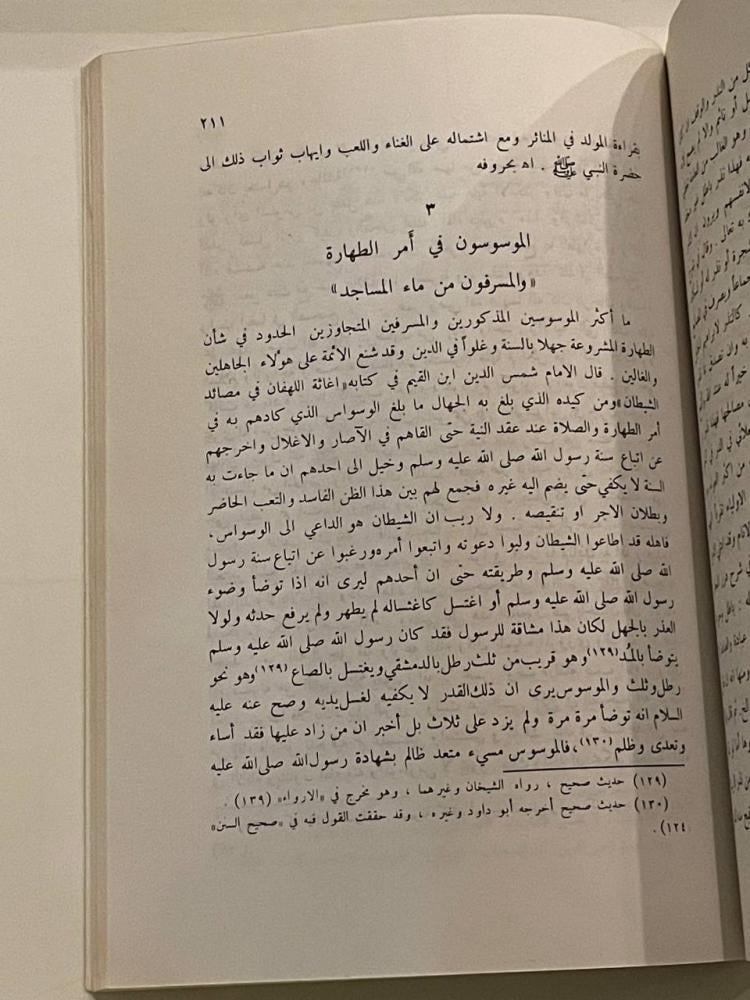 ٢١١
بقراءة المولد في المنائر ومع اشتماله على الغناء واللعب وايهاب ثواب ذلك الى
حضرة النبي ﷺ . اه بحروفه
٣
الموسوسون في أَمر الطهارة
«والمسرفون من ماء المساجد»
ما أكثر الموسوسين المذكورين والمسرفين المتجاوزين الحدود في شأن
الطهارة المشروعة جهلا بالسنة وغلواً في الدين وقد شنع الائمة على هولاء الجاهلين
والغالين . قال الامام شمس الدين ابن القيم في كتابه «اغاثة اللهفان في مصائد
الشيطان» ومن كيده الذي بلغ به الجهال ما بلغ الوسواس الذي كادهم به في
أمر الطهارة والصلاة عند عقد النية حتى القاهم في الآصار والاغلال واخرجهم
عن اتباع سنة رسول الله صلى الله عليه وسلم وخيل الى احدهم ان ما جاءت به
السنة لا يكفي حتى يضم اليه غيره فجمع لهم بين هذا الظن الفاسد والتعب الحاضر
وبطلان الاجر او تنقيصه . ولا ريب ان الشيطان هو الداعي الى الوسواس،
فاهله قد اطاعوا الشيطان ولبوا دعوته واتبعوا أمره ورغبوا عن اتباع سنة رسول
الله صلى الله عليه وسلم وطريقته حتى ان أحدهم ليرى انه اذا توضأ وضوء
رسول الله صلى الله عليه وسلم أو اغتسل كاغتساله لم يطهر ولم يرفع حدثه ولولا
العذر بالجهل لكان هذا مشاقة للرسول فقد كان رسول الله صلى الله عليه وسلم
يتوضأ بالمُد(١٢٩) وهو قريب من ثلث رطل بالدمشقي ويغتسل بالصاع(١٢٩) وهو نحو
رطل وثلث والموسوس يرى ان ذلك القدر لا يكفيه لغسل يديه وصح عنه عليه
السلام انه توضأ مرة مرة ولم يزد على ثلاث بل أخبر ان من زاد عليها فقد أساء
وتعدى وظلم(١٣٠)، فالموسوس مسيء متعد ظالم بشهادة رسول الله صلى الله عليه
(١٢٩) حديث صحيح ، رواه الشيخان وغيرهما ، وهو مخرج في «الارواء» (١٣٩) .
(١٣٠) حديث صحيح أخرجه أبو داود وغيره ، وقد حققت القول فيه في «صحيح السنن»
١٢٤) .